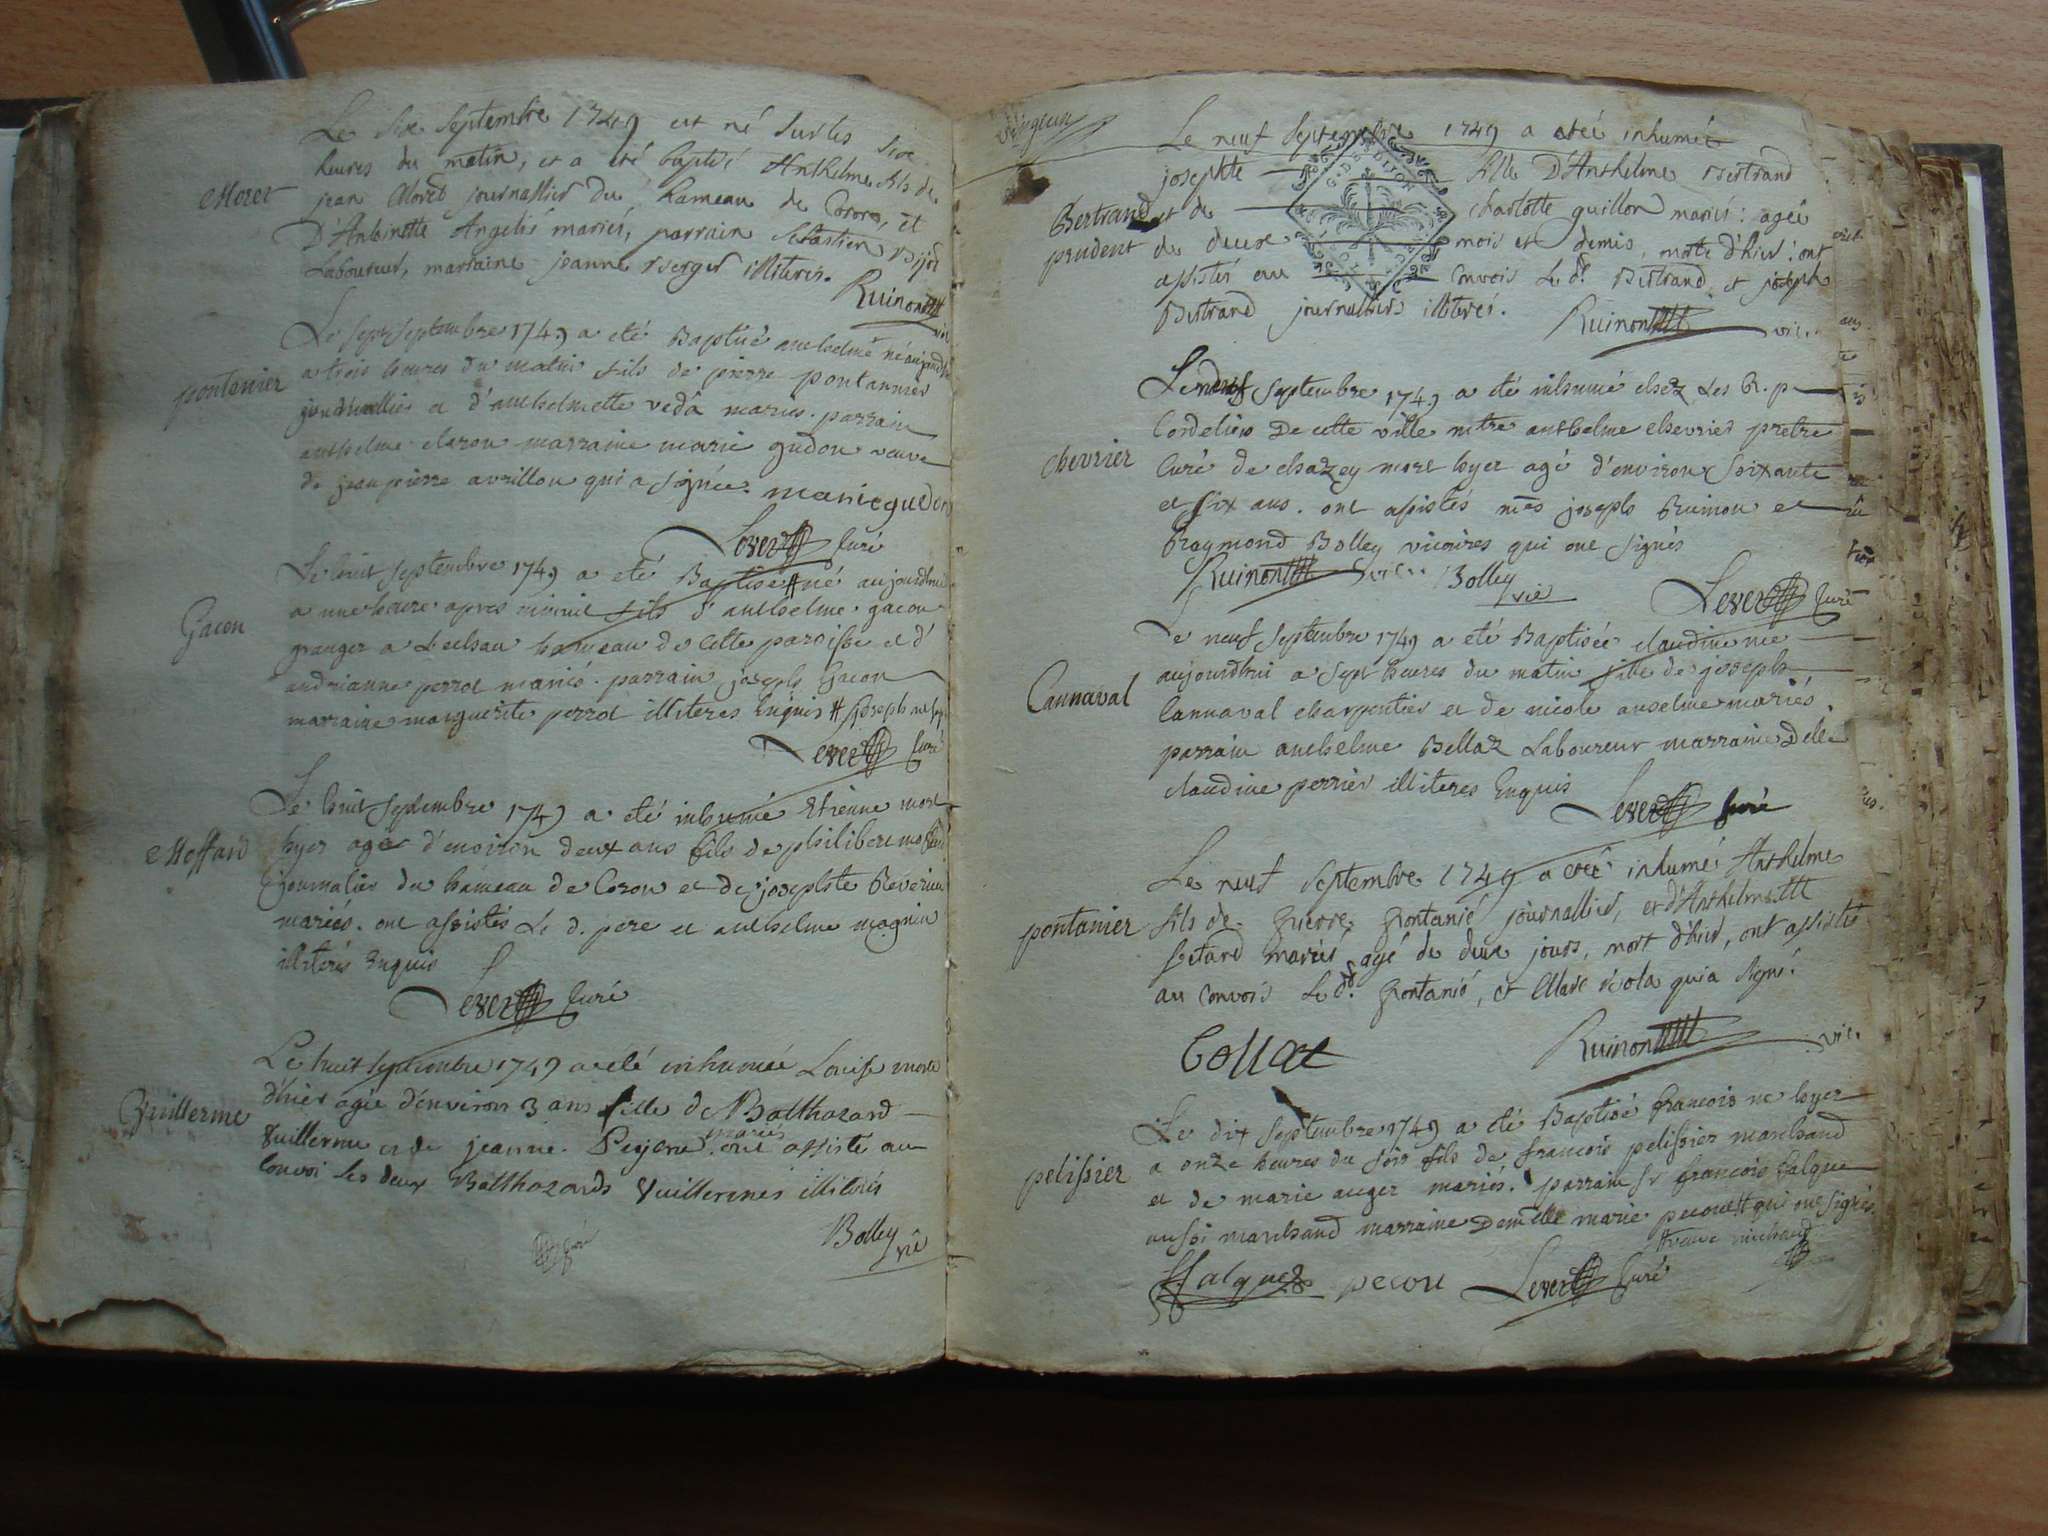 Moret
Le six septembre 1749 est né sur les six
heures du matin, et a été baptisé Anthelme fils de
jean Moret journallier du hameau de Coron, et
D'Antoinette Angelis mariés, parrain Sébastien Bijot
Laboureur, marraine jeanne Berger illiterés.
Ruinon vic
pontenier
Le sept septembre 1749 a eté Baptisé anthelme né aujourdhui
a trois heures du matin fils de pierre pontannier
journallier et d'anthelmette veda mariés. parrain
anthelme claron marraine marie gudon veuve
de jean pierre avrillon qui a signée. marie gudon
Lever Curé
Gacon
Le huit septembre 1749 a eté Baptisé # né aujourdhui
a une heure apres minuit fils d'anthelme gacon
granger a Lechau hameau de cette paroisse et d'
andrianne perrot mariés. parrain joseph Gacon
marraine marguerite perrot illiteres Enquis # joseph
Lever Curé
Moffard
Le huit septembre 1749 a eté inhumé Etienne mort
hyer agé d'environ deux ans fils de philibert moffard
journalier du hameau de Coron et de josephte Reverieu
mariés. ont assistés Le d. pere et anthelme magnin
illiterés Enquis
Lever Curé
Vuillerme
Le huit septembre 1749 a eté inhumée Louise morte
d'hier agée d'environ 3 ans fille de Balthazard
Vuillerme et de jeanne Peysru mariés ont assisté au
convoi les deux Balthazards Vuillermes illiterés
Bolley vic
G. DE DIJON
Bertrand
prudent
Le neuf septembre 1749 a eté inhumée
josephte fille D'Anthelme Bertrand
et de charlotte guillon mariés: agée
de deux mois et demis, morte d'hier: ont
assistés au Convois Le d. Bertrand, et joseph
Bertrand journalliers illiterés.
Ruinon vic.
chevrier
Le neuf septembre 1749 a eté inhumé chez Les R. p
Cordeliers De cette ville mtre anthelme chevrier pretre
Curé de chazey mort hyer agé d'environ soixante
et six ans. ont assistés mes joseph Ruinon et
Raymond Bolley vicaires qui ont signés
Ruinon vic. Bolley vic
Lever Curé
Cannaval
Le neuf septembre 1749 a eté Baptisée claudine née
aujourdhui a sept heures du matin fille de joseph
Cannaval charpentier et de nicole anselme mariés.
parrain anthelme Bellaz Laboureur marraine Delle
claudine perrier illiteres Enquis
Lever Curé
pontanier
Le neuf septembre 1749 a eté inhumé Anthelme
fils de pierre pontanié journallier, et d'Anthelmette
setard mariés agé de deux jours, mort d'hier, ont assistés
au convois Le d. pontanié, et Marc qui a signé.
Collat Ruinon vic.
pelissier
Le dix septembre 1749 a eté Baptisé francois né hyer
a onze heures du soir fils de francois pelissier marchand
et de marie auger mariés. parrain sr francois falque
aussi marchand marraine Demelle marie pecou # qui ont signés
# veuve michaud
F falque pecou Lever Curé